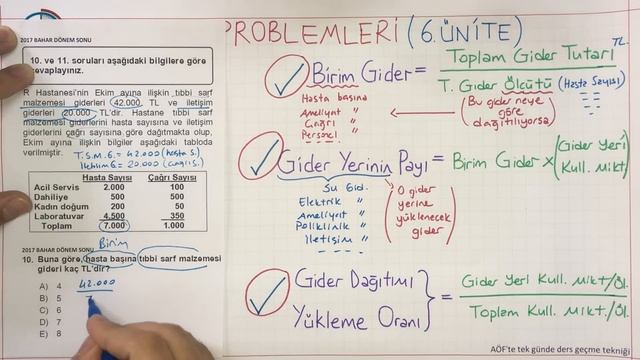 2017 BAHAR DÖNEM SONU
10. ve 11. soruları aşağıdaki bilgilere göre
cevaplayınız.
R Hastanesi'nin Ekim ayına ilişkin tıbbi sarf
malzemesi giderleri 42.000 TL ve iletişim
giderleri 20.000 TL'dir. Hastane tıbbi sarf
malzemesi giderlerini hasta sayısına ve iletişim
giderlerini çağrı sayısına göre dağıtmakta olup,
Ekim ayına ilişkin bilgiler aşağıdaki tabloda
verilmiştir.
T.S.M.G.= 42.000 (hasta S.)
İletişim G.= 20.000 (Çağrı S.)
Hasta Sayısı Çağrı Sayısı
Acil Servis 2.000 100
Dahiliye 500 500
Kadın doğum 200 50
Laboratuvar 4.500 350
Toplam 7.000 1.000
2017 BAHAR DÖNEM SONU
Birim
10. Buna göre, hasta başına tıbbi sarf malzemesi
gideri kaç TL'dir?
A) 4
B) 5
C) 6
D) 7
E) 8
42.000
7
PROBLEMLERİ (6. ÜNİTE)
Birim Gider = Toplam Gider Tutarı TL
T. Gider Ölçütü (Hasta Sayısı)
Hasta başına
Ameliyat "
Çağrı "
Personel "
(Bu gider neye
göre
dağıtılıyorsa)
Gider Yerinin Payı = Birim Gider x (Gider Yeri
Kull. Mikt.)
Su Gid.
Elektrik "
Ameliyat "
Poliklinik "
İletişim "
(O gider
yerine
yüklenecek
gider)
Gider Dağıtımı
Yükleme Oranı
= Gider Yeri Kull. Mikt/Öl.
Toplam Kull. Mikt./Öl.
AÖF'te tek günde ders geçme tekniği